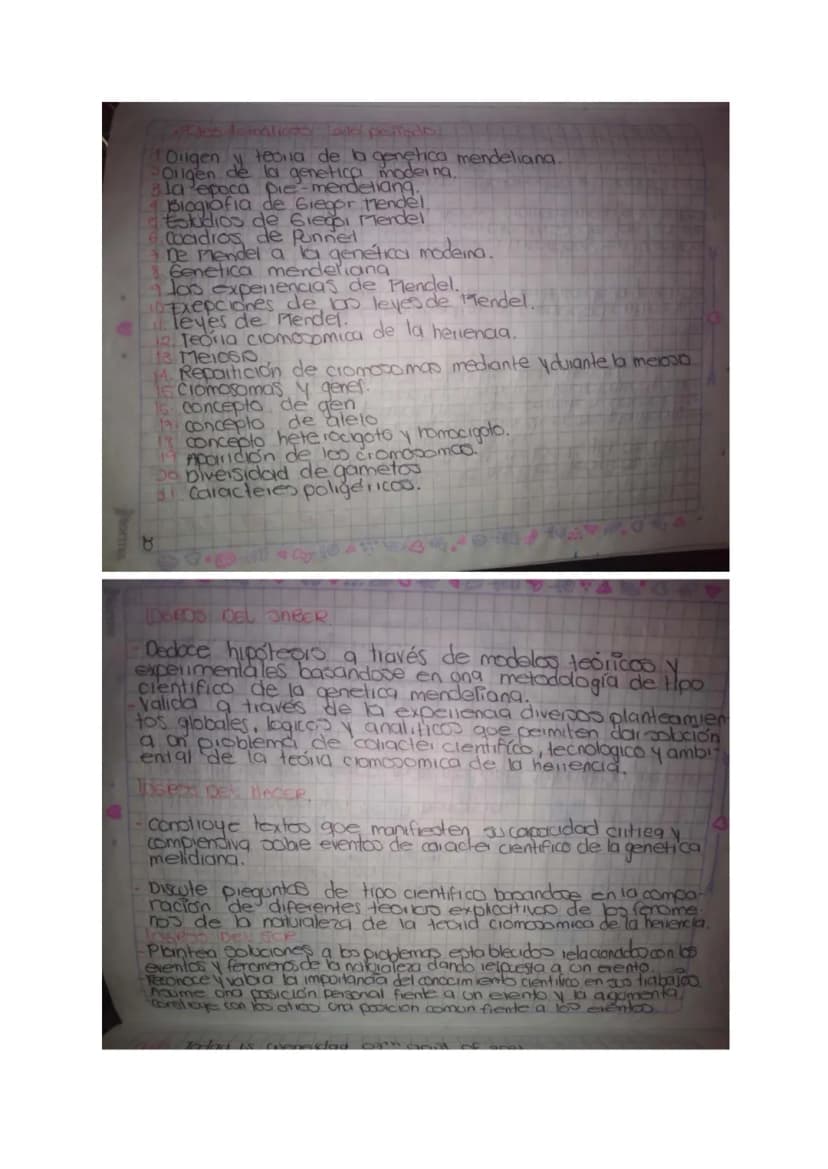 1 Origen y teoria de la genetica mendeliana.
2 Origen de la genetica moderna.
3 la epoca pre-mendeliana.
4 Biografia de Gregor Mendel
5 Estudios de Gregor Mendel
6 Cuadros de Punnet
7 De Mendel a la genética moderna.
8 Genetica mendeliana
9 las experiencias de Mendel.
10 Exepciones de las leyes de Mendel.
11. leyes de Mendel.
12. Teoria cromosomica de la herencia.
13. Meiosis
14. Repartición de cromosomas mediante y durante la meiosis
15 Cromosomas y genes.
16. concepto de gen
17. concepto de alelo
18 concepto heterocigoto y homocigoto.
19 Aparición de los cromosomas.
20 Diversidad de gametos
21. Caracteres poligericos.
LOGROS DEL SABER
- Deduce hipótesis a través de modelos teóricos y
experimentales basandose en una metodología de tipo
cientifico de la genetica mendeliana.
- valida a través de la experiencia diversos planteamien
tos globales, logicos y analiticos que permiten dar solución
a un problema de caracter cientifico, tecnologico y ambi-
ental de la teoria cromosomica de la herencia.
LOGROS DEL HACER.
- construye textos que manifiesten su capacidad critica y
comprensiva sobre eventos de caracter cientifico de la genética
melidiana.
- Discute preguntas de tipo cientifico basandose en la compa-
ración de diferentes teorias explicativas de los fenome-
nos de la naturaleza de la teoria cromosomica de la herencia.
LOGROS DEL SER
- Plantea soluciones a los problemas establecidos relacionado con los
eventos y fenomenos de la naturaleza dando respuesta a un evento.
- Reconoce y valora la importancia del conocimiento cientifico en sus trabajos
- Asume una posición personal frente a un evento y la argumenta,
construye con los otros una posicion comun frente a los eventos.